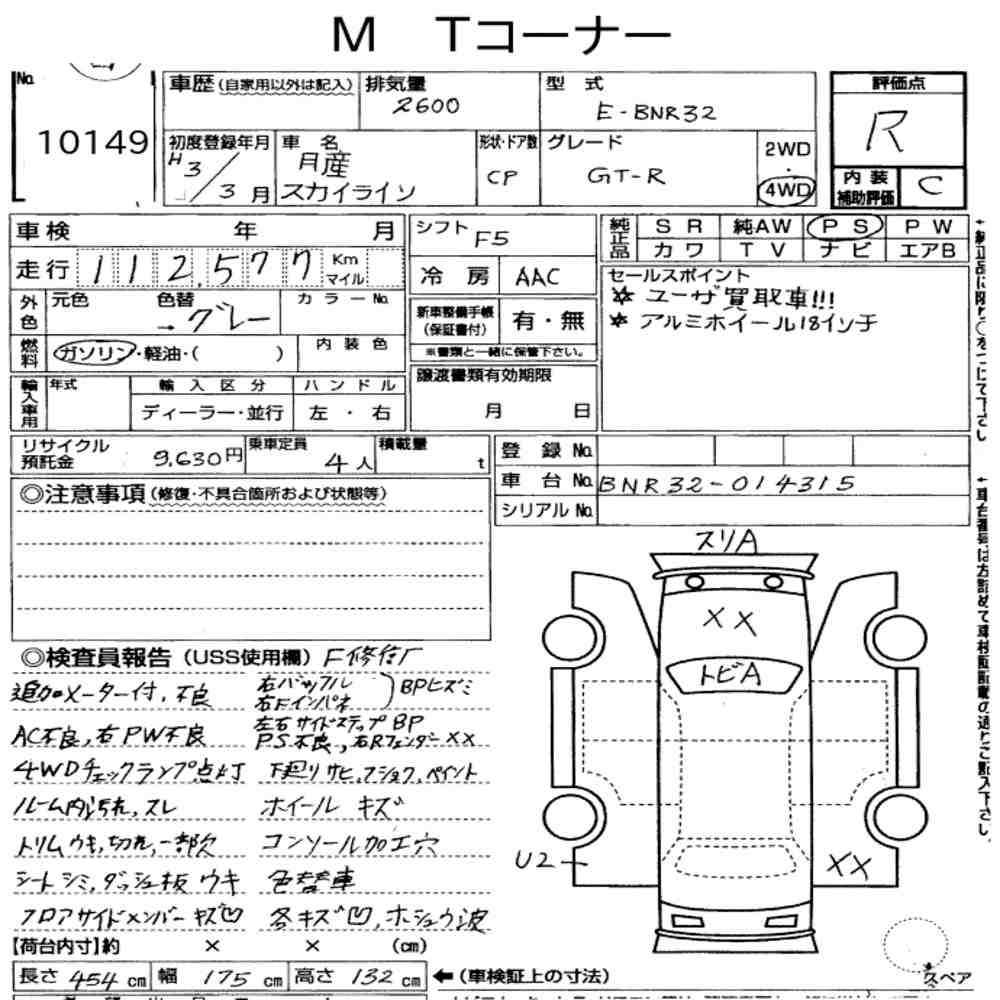 M Tコーナー
No.
10149
車歴(自家用以外は記入)
排気量
2600
型式
E-BNR32
評価点
R
初度登録年月
H3/3月
車名
日産
スカイライン
形状・ドア数
CP
グレード
GT-R
2WD
・
4WD
内装
補助評価
C
車検 年 月
シフト
F5
純正品
SR 純AW PS PW
カワ TV ナビ エアB
走行 112,577 Km
マイル
冷房 AAC
セールスポイント
☆ ユーザ買取車!!!
☆ アルミホイール18インチ
外色
元色
色替
→グレー
カラーNo.
新車整備手帳
(保証書付)
有・無
※書類と一緒に保管下さい。
燃料
ガソリン・軽油・( )
内装色
輸入車用
年式
輸入区分
ディーラー・並行
ハンドル
左・右
譲渡書類有効期限
月 日
リサイクル
預託金
9,630円
乗車定員
4人
積載量
t
登録No.
車台No. BNR32-014315
シリアルNo.
◎注意事項(修復・不具合箇所および状態等)
◎検査員報告(USS使用欄) F修復厂
追加メーター付,不良
右バッフル
右Fインパネ
BPヒズミ
AC不良,右PW不良
左右サイドステップBP
PS不良,右RフェンダーXX
4WDチェックランプ点灯
下廻りサビ,フショク,ペイント
ルーム内汚れ,スレ
ホイール キズ
トリムウキ,切れ,一部欠
コンソール加工穴
シートシミ,ダッシュ板 ウキ
色替車
フロアサイドメンバーキズ凹
各キズ凹,ホシュウ波
スリA
XX
トビA
U2
XX
スペア
【荷台内寸】約 × × (cm)
長さ 454cm 幅 175cm 高さ 132cm
←(車検証上の寸法)
↑車台番号は左詰めて車検証記載の通りご記入下さい。